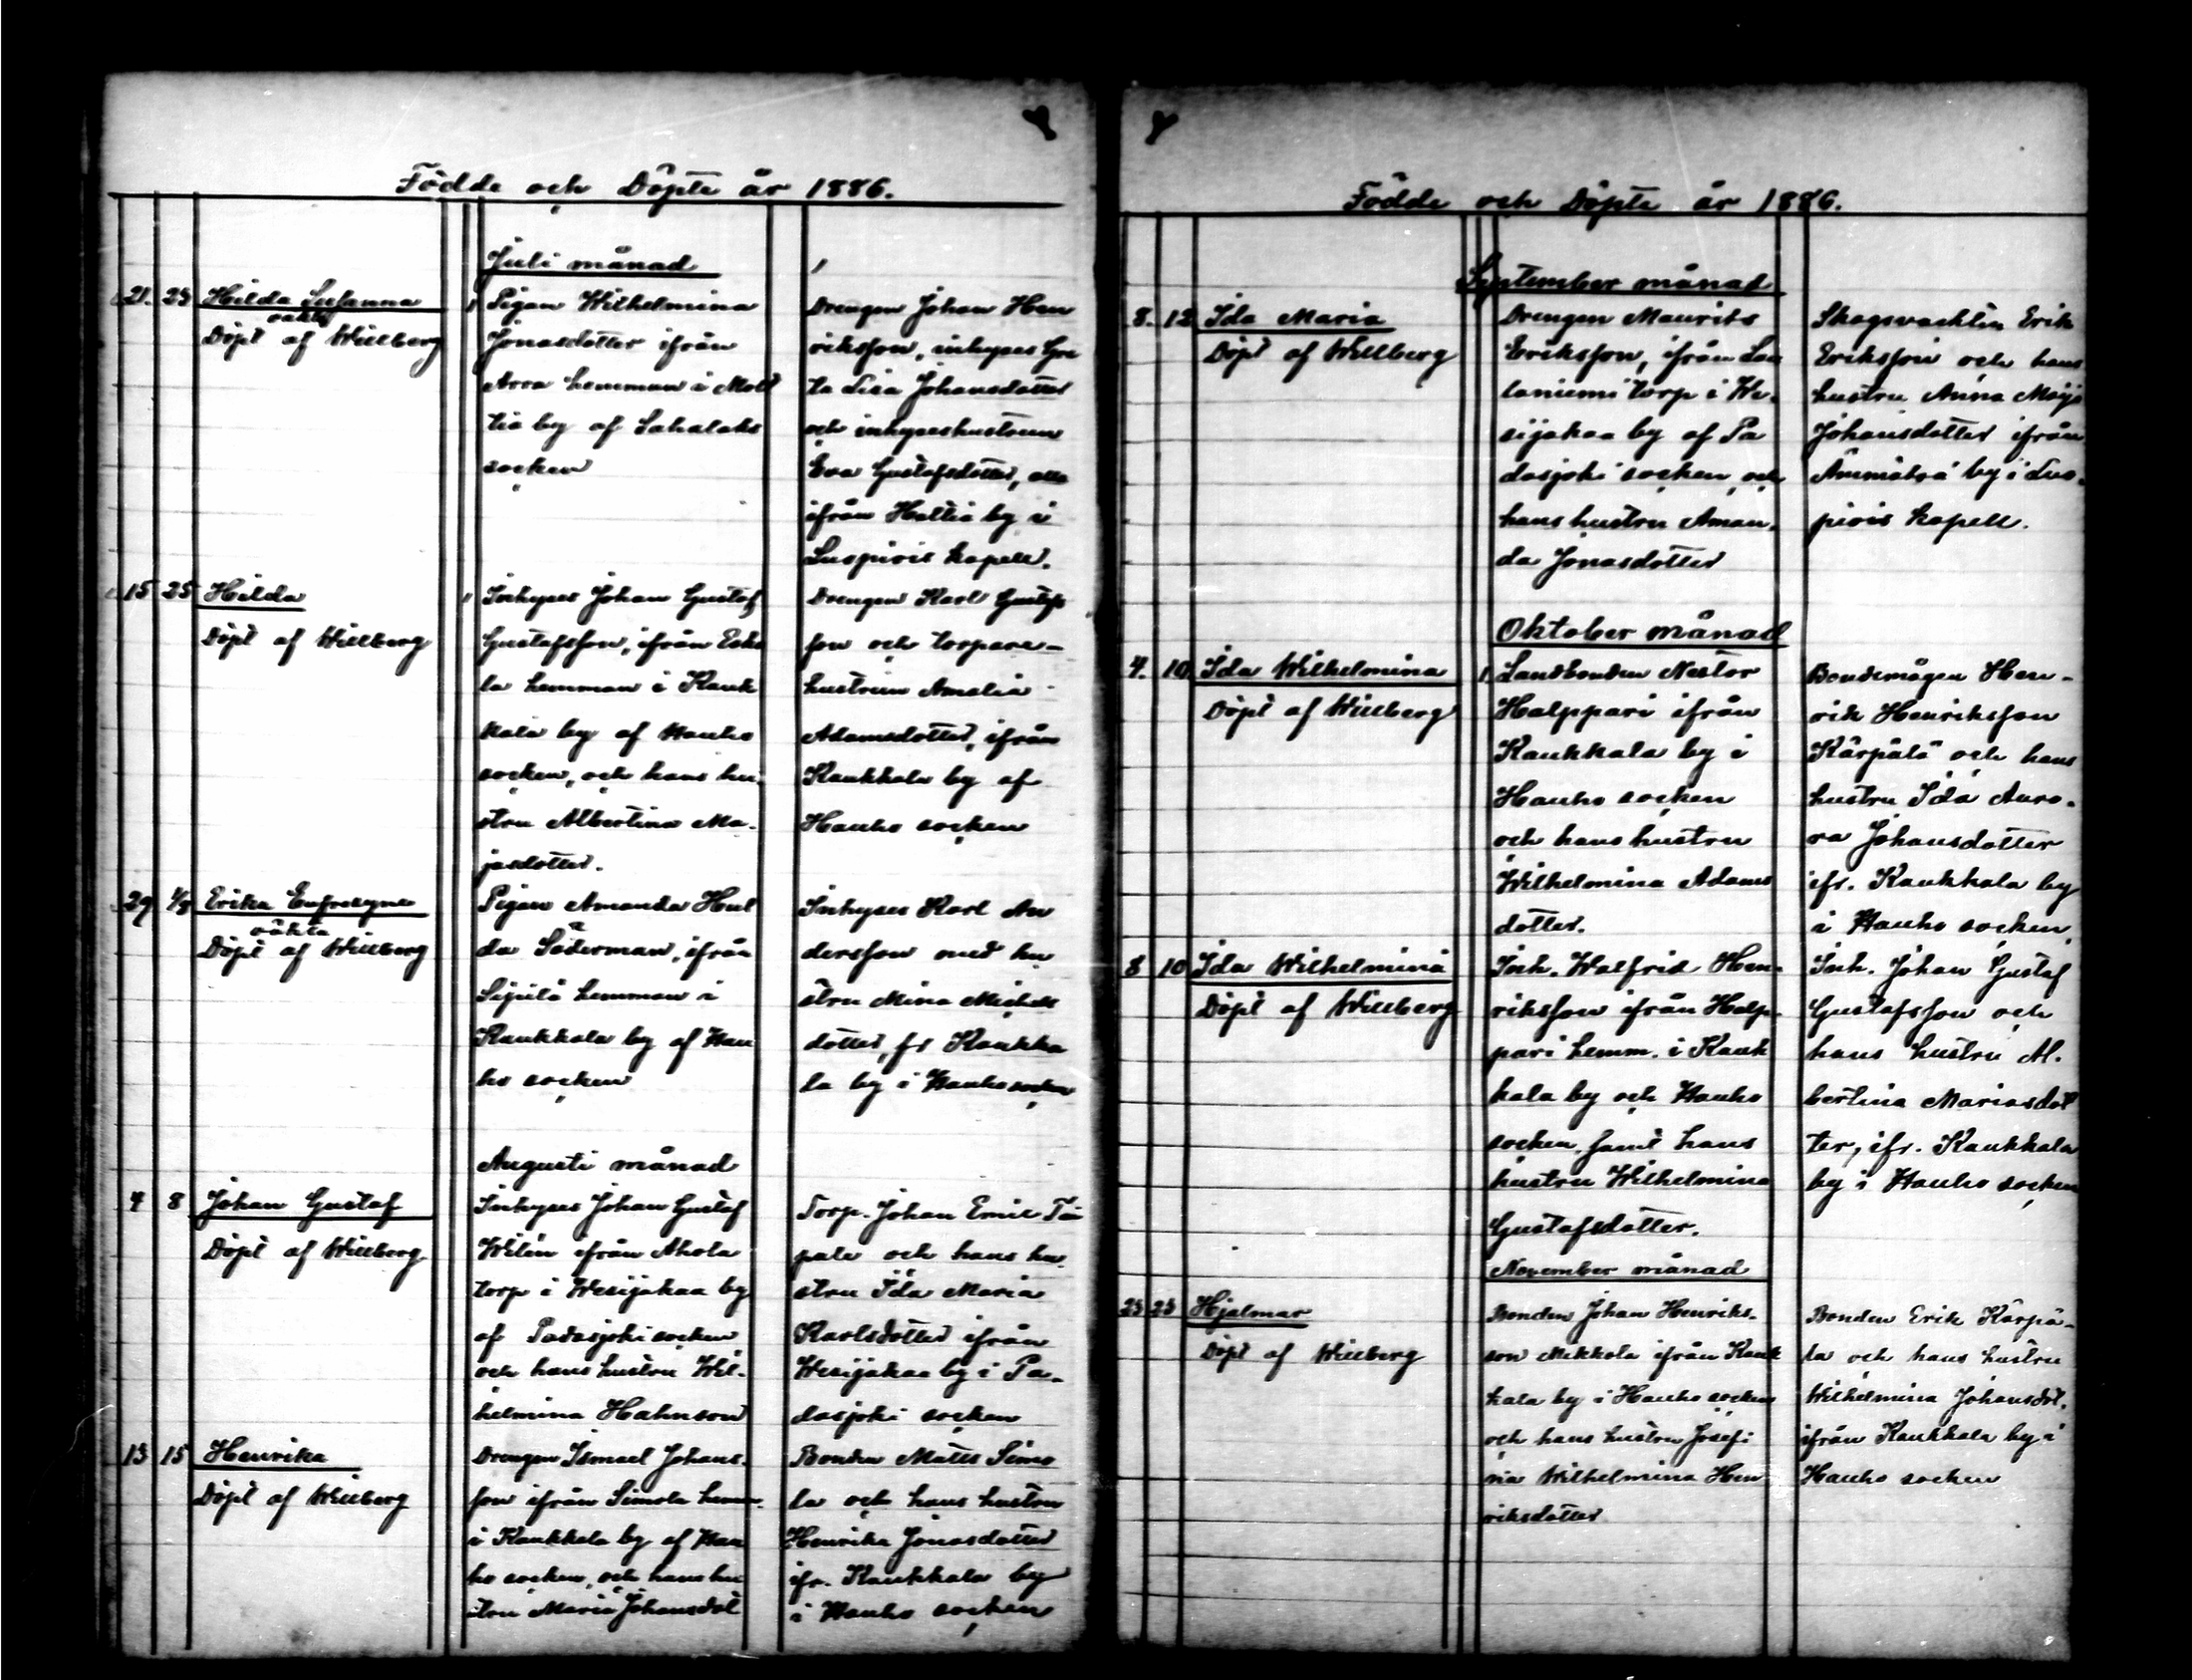 Födde och Döpte år 1886.
Juli månad
21. 25 Hilda Susanna
oäkta
Döpt af Willberg
Pigan Wilhelmina
Jonasdotter ifrån
Arra hemman i Molt
tia by af Sahalaks
socken
Drengen Johan Hen
riksson, inhyses Gre
ta Lisa Johansdotter
och inhyseshustrun
Eva Gustafsdotter, alla
ifrån Haltia by i
Luopiois kapell.
15 25 Hilda
Döpt af Willberg
Inhyses Johan Gustaf
Gustafsson, ifrån Esko
la hemman i Kauk
kala by af Hauho
socken, och hans hu-
stru Albertina Ma-
jasdotter.
Drengen Karl Gustafs
son och torpare-
hustrun Amalia
Adamsdotter, ifrån
Kaukkala by af
Hauho socken
29 1/8 Erika
oäkta
Döpt af Willberg
Pigan Amanda Hul
da Söderman, ifrån
Sipilä hemman i
Kaukkala by af Hau
ho socken
Inhyses Karl An
dersson med hu
stru Mina Michels
dotter, fr Kaukka
la by i Hauho socken
Augusti månad
4 8 Johan Gustaf
Döpt af Willberg
Inhyses Johan Gustaf
Wilén ifrån Ahola
torp i Wesijakaa by
af Padasjoki socken
och hans hustru Wil-
helmina Hahnson
Torp. Johan Emil Tai
pale och hans hu
stru Ida Maria
Karlsdotter ifrån
Wesijakaa by i Pa-
dasjoki socken
13 15 Henrika
Döpt af Willberg
Drengen Ismael Johans-
son ifrån Simola hem-
i Kaukkala by af Hau
ho socken, och hans hu
stru Maria Johansdot
Bonden Matts Simo
la och hans hustru
Henrika Jonasdotter
ifr. Kaukkala by
i Hauho socken
Födde och Döpte år 1886.
September månad
8. 12 Ida Maria
Döpt af Willberg
Drengen Maurits
Eriksson, ifrån Lau
taniemi torp i We-
sijakaa by af Pa
dasjoki socken och
hans hustru Aman-
da Jonasdotter
Skogsvaktin Erik
Eriksson och hans
hustru Anna Maija
Johansdotter ifrån
Ämmätsä by i Luo-
piois kapell.
Oktober månad
4. 10 Ida Wilhelmina
Döpt af Willberg
Landbonden Nestor
Halppari ifrån
Kaukkala by i
Hauho socken
och hans hustru
Wilhelmina Adams
dotter.
Bondemågen Hen-
rik Henriksson
Kärpälä och hans
hustru Ida Auro-
ra Johansdotter
ifr. Kaukkala by
i Hauho socken
8 10 Ida Wilhelmina
Döpt af Willberg
Inh. Walfrid Hen-
riksson ifrån Halp-
pari hemm. i Kauk
kala by och Hauho
socken, samt hans
hustru Wilhelmina
Gustafsdotter.
Inh. Johan Gustaf
Gustafsson och
hans hustru Al-
bertina Mariasdot
ter, ifr. Kaukkala
by i Hauho socken
November månad
23 23 Hjalmar
Döpt af Willberg
Bonden Johan Henriks-
son Mikkola ifrån Kauk
kala by i Hauho socken
och hans hustru Josefi
na Wilhelmina Hen
riksdotter
Bonden Erik Kärpä-
lä och hans hustru
Wilhelmina Johansdot.
ifrån Kaukkala by i
Hauho socken